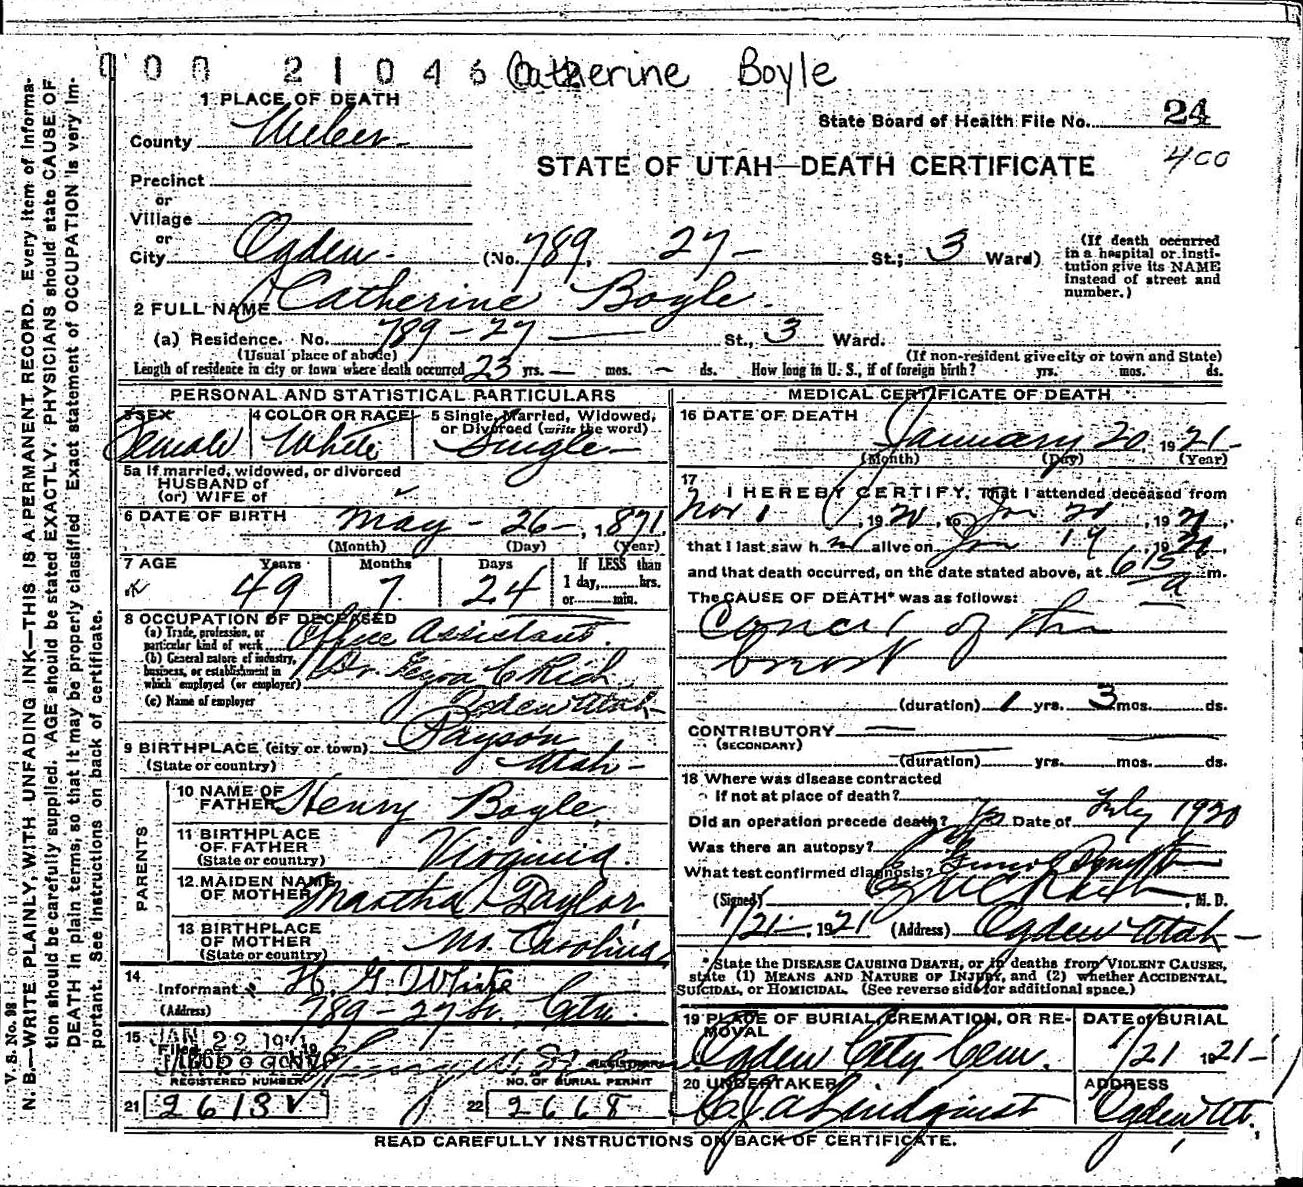 000 21046 Catherine Boyle
1 PLACE OF DEATH
State Board of Health File No. 24
County Weber
400
STATE OF UTAH—DEATH CERTIFICATE
Precinct
or
Village
or
City Ogden (No. 789, 27 — St.; 3 Ward)
(If death occurred in a hospital or institution give its NAME instead of street and number.)
2 FULL NAME Catherine Boyle
(a) Residence. No. 789 - 27 St., 3 Ward.
(Usual place of abode) (If non-resident give city or town and State)
Length of residence in city or town where death occurred 23 yrs. — mos. — ds. How long in U. S., if of foreign birth? yrs. mos. ds.
PERSONAL AND STATISTICAL PARTICULARS
3 SEX Female
4 COLOR OR RACE White
5 Single, Married, Widowed, or Divorced (write the word) Single
5a If married, widowed, or divorced
HUSBAND of
(or) WIFE of
6 DATE OF BIRTH May - 26 -, 1871
(Month) (Day) (Year)
7 AGE Years Months Days If LESS than
49 7 24 1 day, hrs.
or min.
8 OCCUPATION OF DECEASED
(a) Trade, profession, or particular kind of work Office Assistant
(b) General nature of industry, business, or establishment in which employed (or employer) Dr. Ezra C Rich
(c) Name of employer Ogden Utah
9 BIRTHPLACE (city or town) Payson
(State or country) Utah
PARENTS
10 NAME OF FATHER Henry Boyle
11 BIRTHPLACE OF FATHER (State or country) Virginia
12 MAIDEN NAME OF MOTHER Martha Taylor
13 BIRTHPLACE OF MOTHER (State or country) No. Carolina
14
Informant H. G. White
(Address) 789 - 27 St. City
15 JAN 22 1921
Filed 19
REGISTRAR
REGISTERED NUMBER
21 2613
NO. OF BURIAL PERMIT
22 2668
MEDICAL CERTIFICATE OF DEATH
16 DATE OF DEATH
January 20, 1921
(Month) (Day) (Year)
17
I HEREBY CERTIFY, That I attended deceased from
Nov 1, 1920, to Jan 20, 1921,
that I last saw her alive on Jan 19, 1921,
and that death occurred, on the date stated above, at 6 15 a m.
The CAUSE OF DEATH* was as follows:
Cancer of the
breast
(duration) 1 yrs. 3 mos. ds.
CONTRIBUTORY
(SECONDARY)
(duration) yrs. mos. ds.
18 Where was disease contracted
If not at place of death?
Did an operation precede death? yes Date of July 1920
Was there an autopsy?
What test confirmed diagnosis?
(Signed) Rich, M. D.
1/21, 1921 (Address) Ogden Utah
*State the DISEASE CAUSING DEATH, or in deaths from VIOLENT CAUSES, state (1) MEANS AND NATURE OF INJURY, and (2) whether ACCIDENTAL, SUICIDAL, or HOMICIDAL. (See reverse side for additional space.)
19 PLACE OF BURIAL, CREMATION, OR REMOVAL
Ogden City Cem.
DATE of BURIAL
1/21 1921
20 UNDERTAKER
Lindquist
ADDRESS
Ogden Ut.
READ CAREFULLY INSTRUCTIONS ON BACK OF CERTIFICATE.
V. S. No. 98
N. B.—WRITE PLAINLY, WITH UNFADING INK—THIS IS A PERMANENT RECORD. Every item of information should be carefully supplied. AGE should be stated EXACTLY. PHYSICIANS should state CAUSE OF DEATH in plain terms, so that it may be properly classified. Exact statement of OCCUPATION is very important. See instructions on back of certificate.